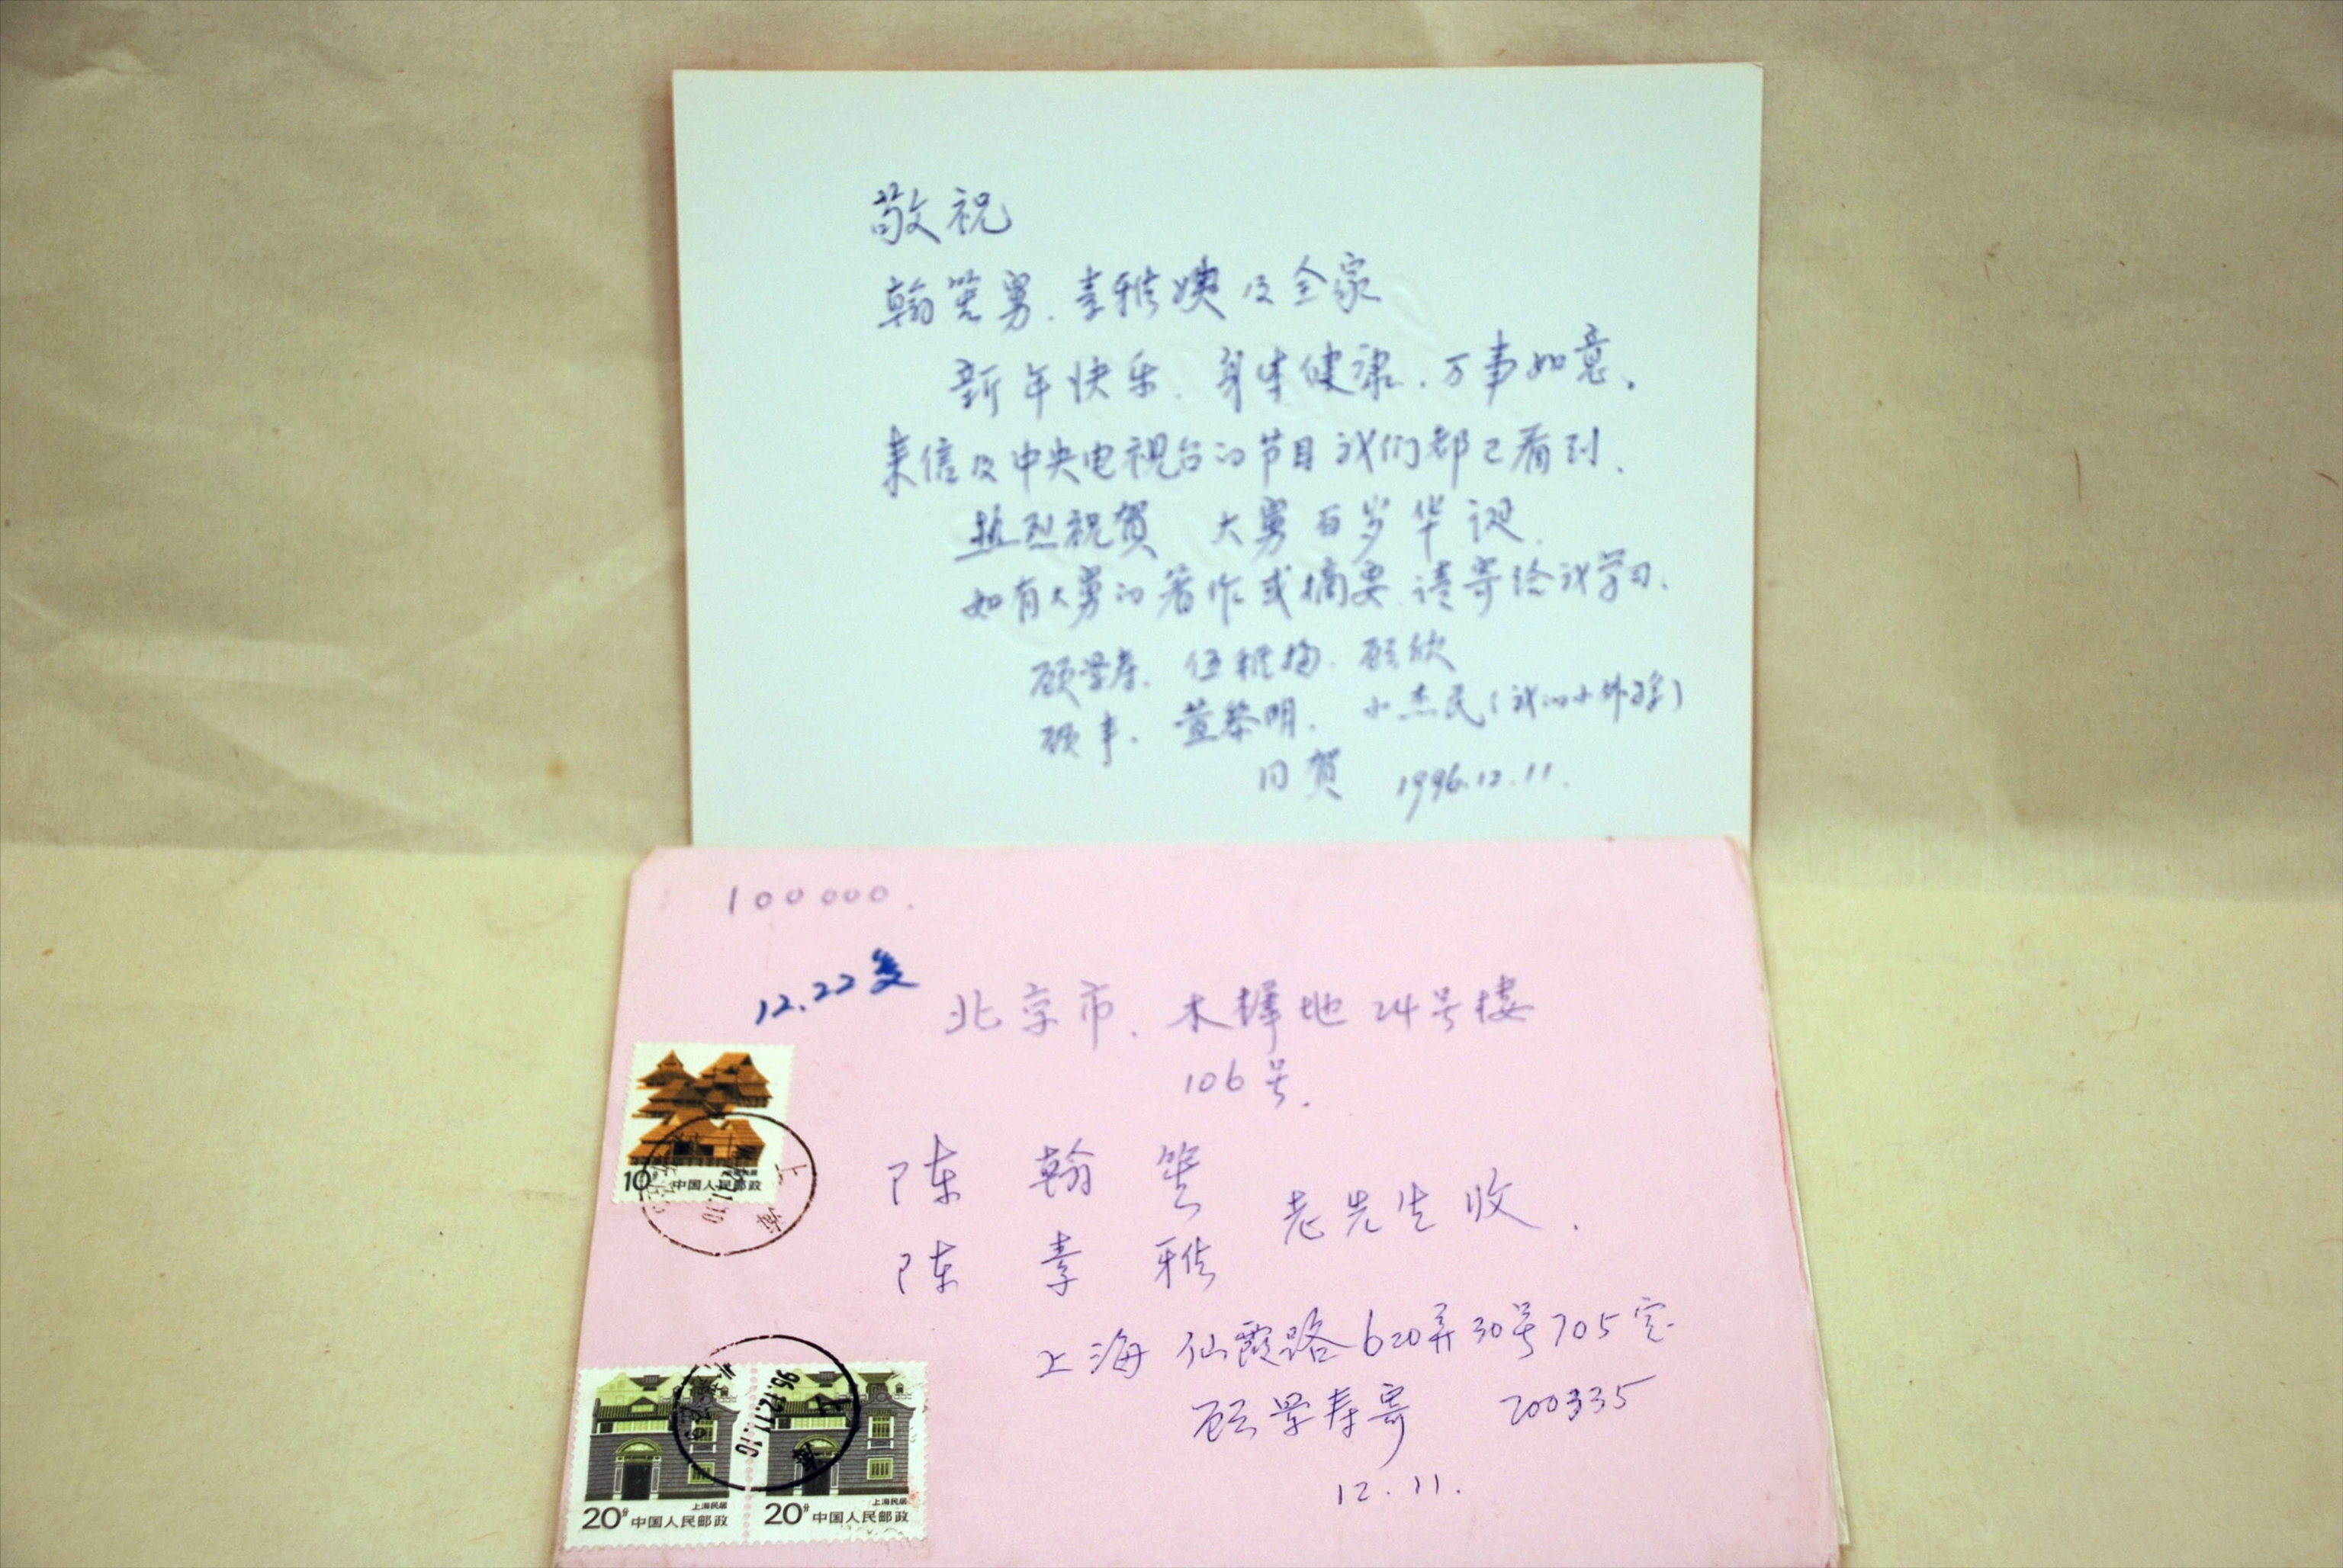 敬祝
翰笙舅、素雅姨及全家
新年快乐、身体健康、万事如意。
来信及中央电视台的节目我们都已看到、
热烈祝贺 大舅百岁华诞
如有大舅的著作或摘要、请寄给我学习、
顾学寿、伍雅梅、顾欣
顾丰、黎明、小杰民(我的小外孙)
同贺 1996.12.11.
100000.
12.22复
北京市、木樨地24号楼
106号.
陈翰笙
陈素雅 老先生收.
上海仙霞路620弄30号705室
顾学寿寄 200335
12.11.
10分 中国人民邮政
上海
上海民居
20分 中国人民邮政
上海民居
20分 中国人民邮政
上海
96.12.11.10